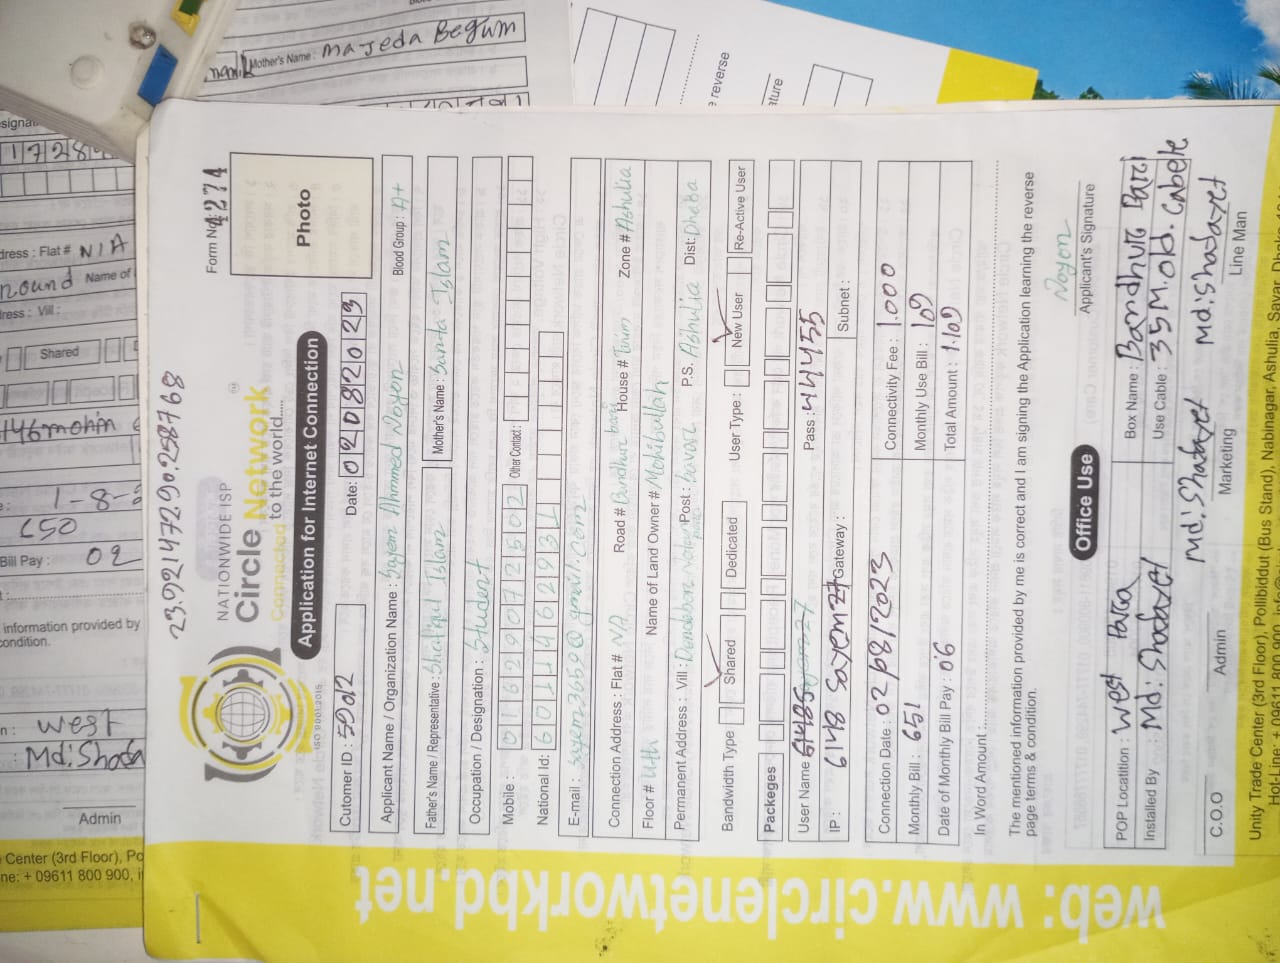 23.9214729 90.258768
Form No 4274
NATIONWIDE ISP
Circle Network
Connected to the world.....
ISO 9001:2015
Photo
Application for Internet Connection
Cutomer ID : 5902 Date: 02082023
Applicant Name / Organization Name : Sayem Ahmmed Noyon Blood Group : A+
Father's Name / Representative : Shafiqul Islam Mother's Name : Banta Islam
Occupation / Designation : Student
Mobile : 01629072502 Other Contact :
National Id: 6011462931
E-mail : sayem3659@gmail.com
Connection Address : Flat # NA Road # Bandhur bari House # Tinim Zone # Ashulia
Floor # Uth Name of Land Owner # Mohibullah
Permanent Address : Vill : Dendabor Post : Savar P.S. Ashulia Dist: Dhaka
Bandwidth Type Shared Dedicated User Type : New User Re-Active User
Packeges :
User Name 6148 Sayem27 Pass : 444455
IP : Gateway : Subnet :
Connection Date : 02/08/2023 Connectivity Fee : 1.000
Monthly Bill : 651 Monthly Use Bill : 109
Date of Monthly Bill Pay : 06 Total Amount : 1.109
In Word Amount :
The mentioned information provided by me is correct and I am signing the Application learning the reverse
page terms & condition.
Noyon
Applicant's Signature
Office Use
POP Locatition : West Para Box Name : Bandhur Bari
Installed By : Md: Shadayet Use Cable : 35 M. old. Cabele
Md: Shadayet Md: Shadayet
C.O.O Admin Marketing Line Man
Unity Trade Center (3rd Floor), Pollibiddut (Bus Stand), Nabinagar, Ashulia, Savar, Dhaka
Hot-Line: + 09611 800 900
web: www.circlenetworkbd.net
Mother's Name : Majeda Begum
reverse
Flat # N/A
Name of
Vill :
Shared
1-8-
650
Bill Pay : 02
information provided by
condition.
west
Md: Shada
Admin
Center (3rd Floor), Po
ne: + 09611 800 900,